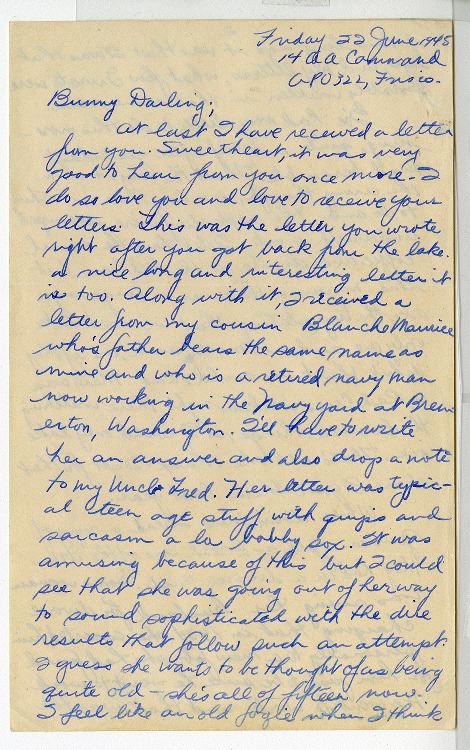 Friday 22 June 1945
14 AA Command
APO 322, Frisco-
Bunny Darling;
At last I have received a letter
from you. Sweetheart, it was very
good to hear from you once more - I
do so love you and love to receive your
letters. This was the letter you wrote
right after you got back from the lake.
a nice long and interesting letter it
is too. Along with it, I received a
letter from my cousin Blanche Maurice
who's father bears the same name as
mine and who is a retired navy man
now working in the Navy yard at Brem
erton, Washington. I'll have to write
her an answer and also drop a note
to my Uncle Fred. Her letter was typic-
al teen age stuff with quips and
sarcasm a la bobby sox. It was
amusing because of this but I could
see that she was going out of her way
to sound sophisticated with the dire
results that follow such an attempt.
I guess she wants to be thought of as being
quite old - she's all of fifteen now.
I feel like an old fogie when I think